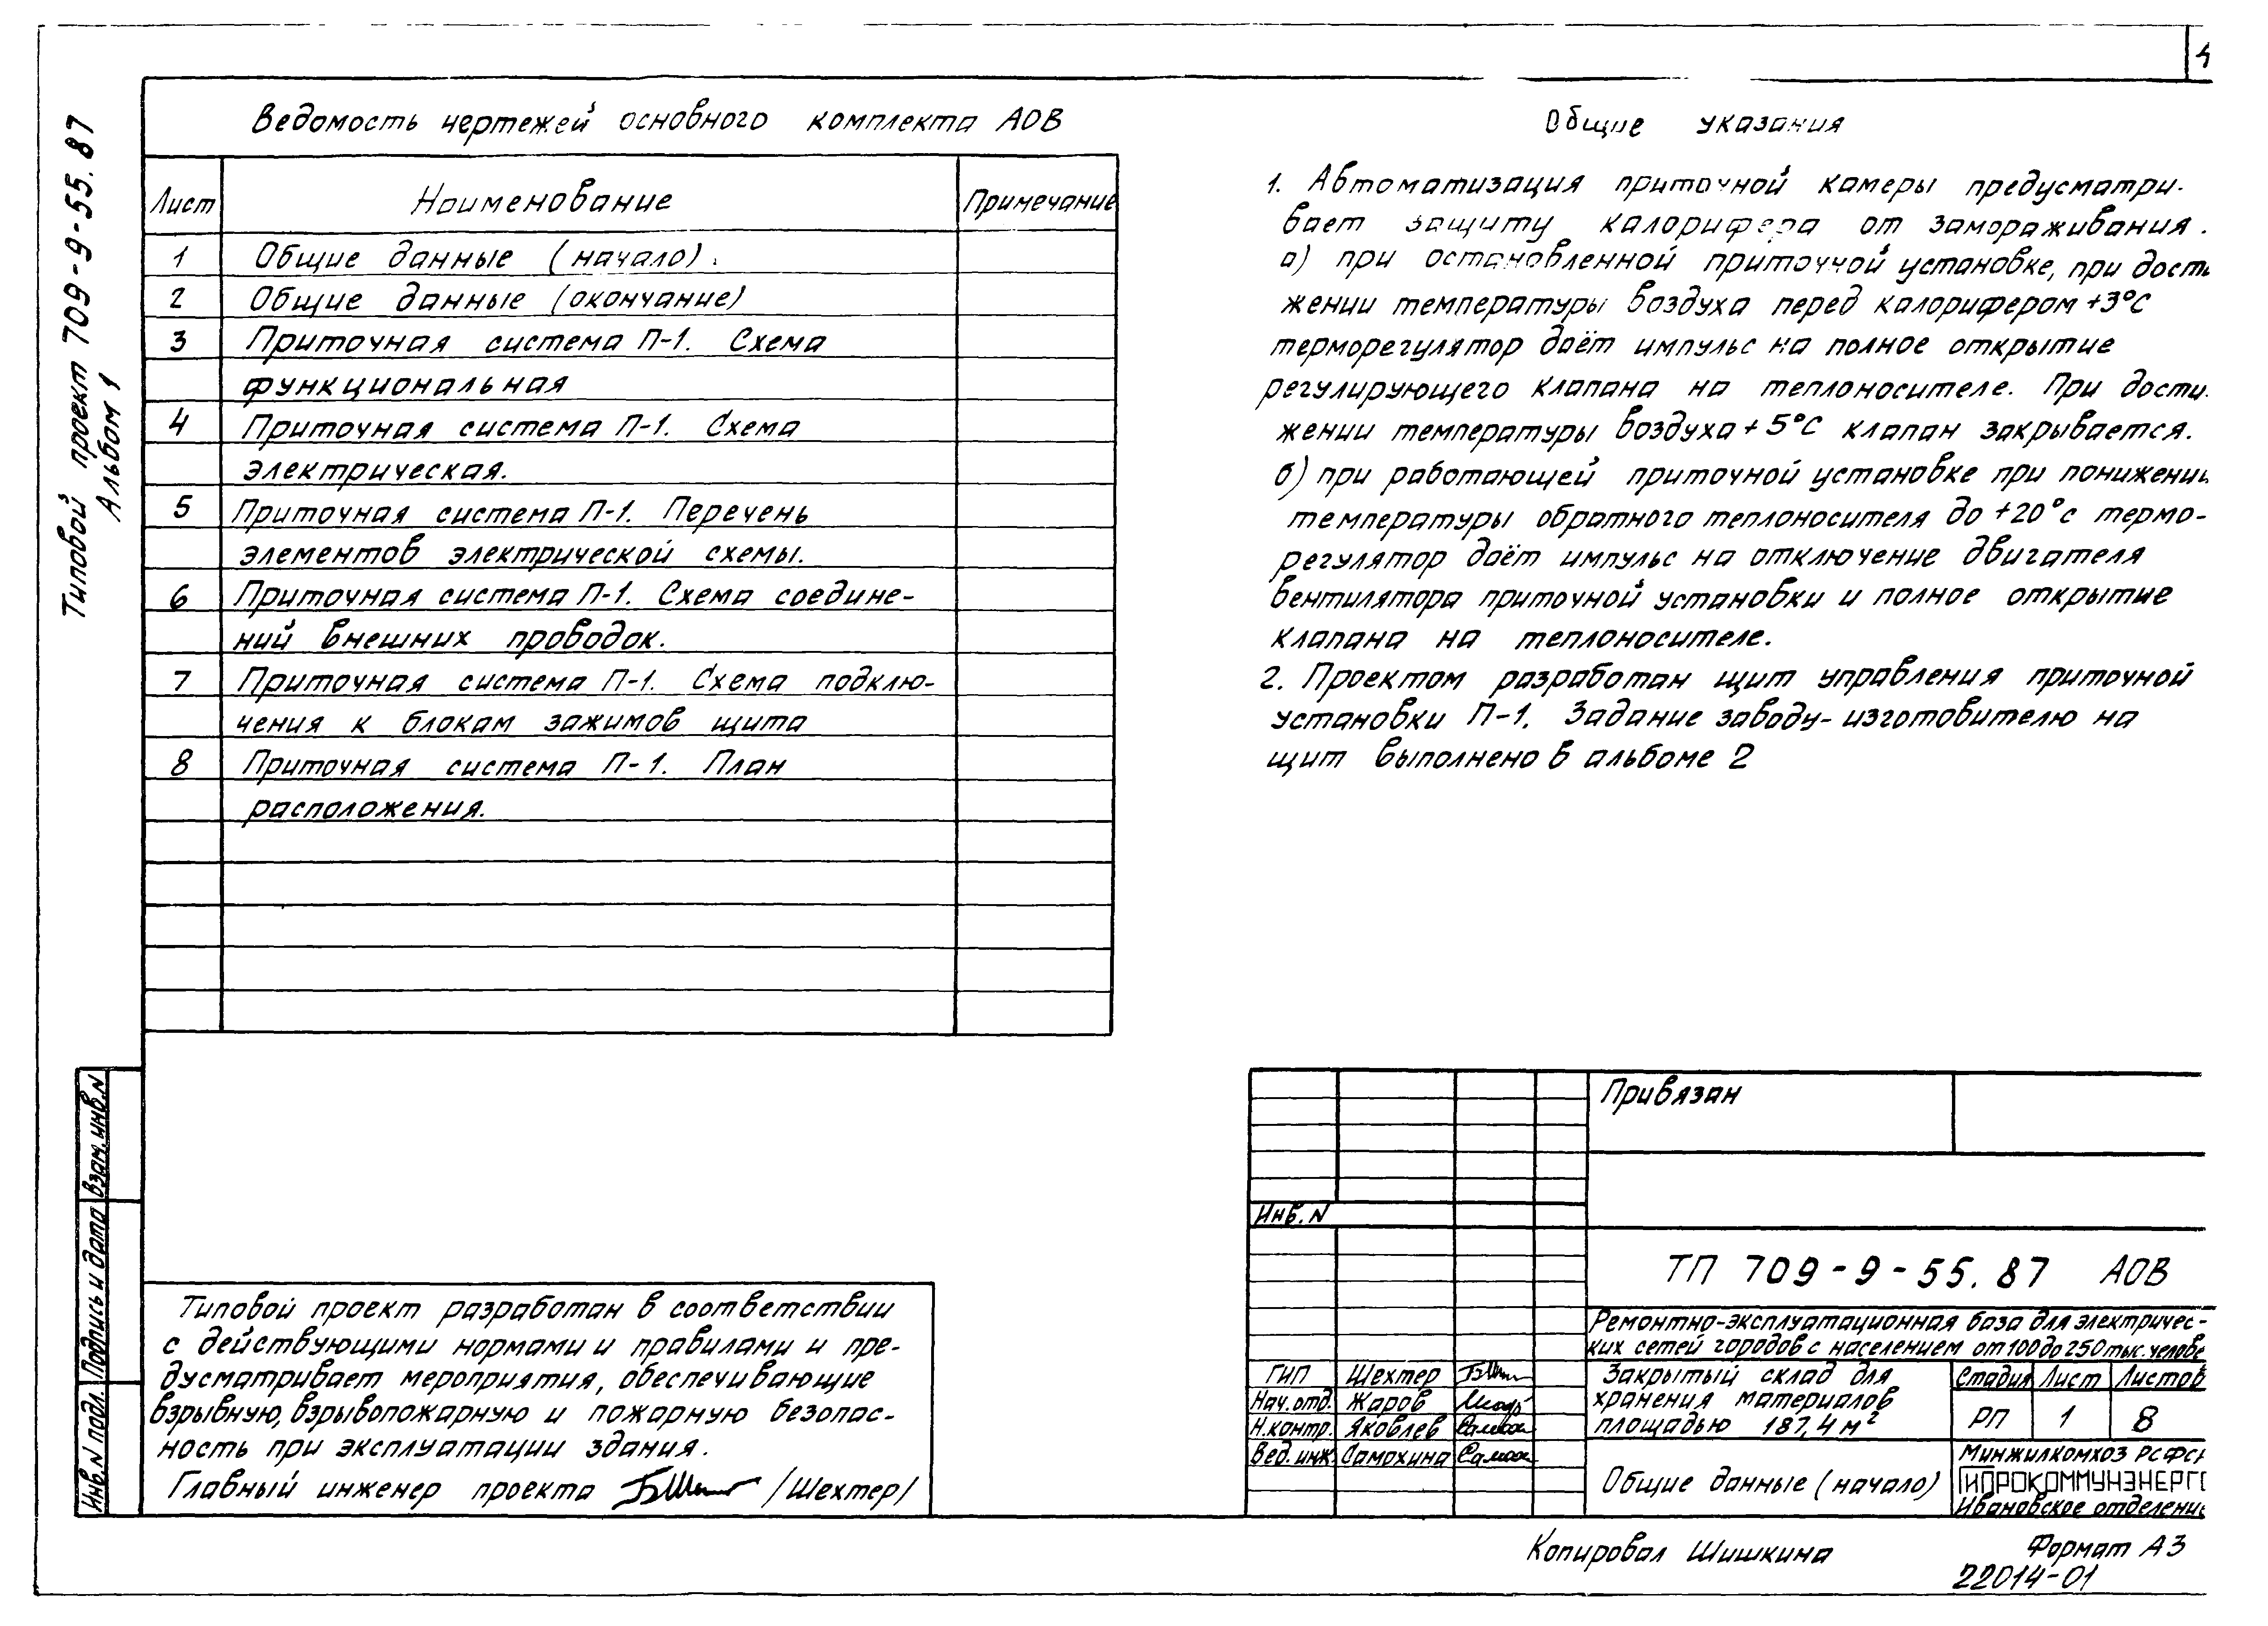 4
Типовой проект 709-9-55.87
Альбом 1
Ведомость чертежей основного комплекта АОВ
Лист Наименование Примечание
1 Общие данные (начало).
2 Общие данные (окончание)
3 Приточная система П-1. Схема
функциональная
4 Приточная система П-1. Схема
электрическая.
5 Приточная система П-1. Перечень
элементов электрической схемы.
6 Приточная система П-1. Схема соедине-
ний внешних проводок.
7 Приточная система П-1. Схема подклю-
чения к блокам зажимов щита
8 Приточная система П-1. План
расположения.
Общие указания
1. Автоматизация приточной камеры предусматри-
вает защиту калорифера от замораживания.
а) при остановленной приточной установке, при дости
жении температуры воздуха перед калорифером +3°С
терморегулятор даёт импульс на полное открытие
регулирующего клапана на теплоносителе. При дости-
жении температуры воздуха +5°С клапан закрывается.
б) при работающей приточной установке при понижении
температуры обратного теплоносителя до +20°с термо-
регулятор даёт импульс на отключение двигателя
вентилятора приточной установки и полное открытие
клапана на теплоносителе.
2. Проектом разработан щит управления приточной
установки П-1. Задание заводу-изготовителю на
щит выполнено в альбоме 2
Взам. инв. N
Подпись и дата
Инв. N подл.
Типовой проект разработан в соответствии
с действующими нормами и правилами и пре-
дусматривает мероприятия, обеспечивающие
взрывную, взрывопожарную и пожарную безопас-
ность при эксплуатации здания.
Главный инженер проекта /Шехтер/
Привязан
Инв. N
ТП 709-9-55.87 АОВ
Ремонтно-эксплуатационная база для электричес-
ких сетей городов с населением от 100 до 250 тыс. челове
ГИП Шехтер
Нач. отд. Жаров
Н. контр. Яковлев
Вед. инж. Самохина
Закрытый склад для
хранения материалов
площадью 187,4 м²
Стадия Лист Листов
РП 1 8
Общие данные (начало)
Минжилкомхоз РСФСР
ГИПРОКОММУНЭНЕРГО
Ивановское отделение
Копировал Шишкина
Формат А3
22014-01